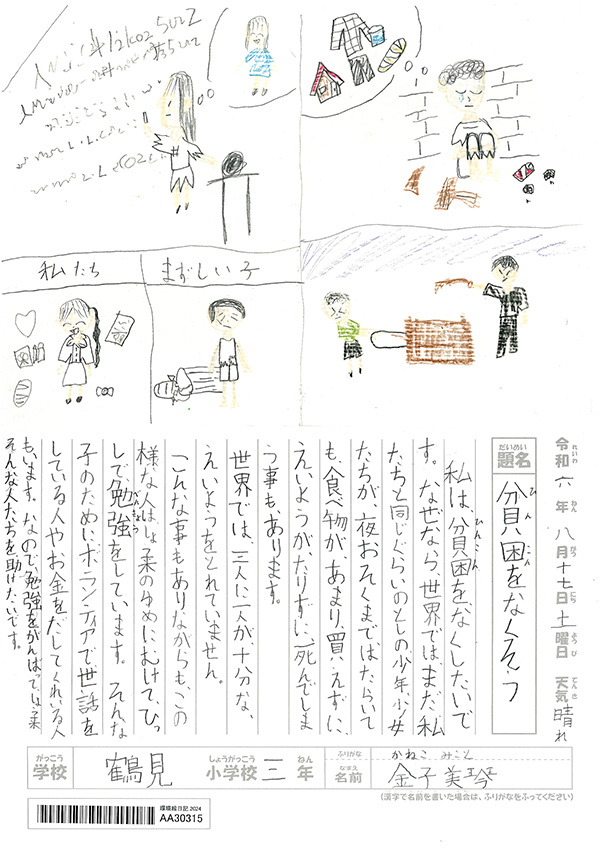 私たち
まずしい子
令和六年八月十七日土曜日 天気晴れ
れいわ ねん がつ にち ようび てんき
だいめい
題名
貧困をなくそう
ひんこん
私は、貧困をなくしたいで
ひんこん
す。なぜなら、世界ではまだ私
たちと同じぐらいのとしの少年、少女
たちが、夜おそくまではたらいて
も、食べ物が、あまり、買えずに、
えいようが、たりずに、死んでしま
う事も、あります。
世界では、三人に一人が、十分な、
えいようをとれていません。
こんな事もあり、ながらも、この
様な人は、しょう来のゆめにむけて、ひっ
しで勉強をしています。そんな
子のためにボランティアで世話を
している人やお金をだしてくれいる人
もいます。なので、勉強をがんばって、しょう来
そんな人たちを助けたいです。
がっこう
学校
鶴見
しょうがっこう
小学校
三
ねん
年
ふりがな
かねこ みこと
なまえ
名前
金子美琴
(漢字で名前を書いた場合は、ふりがなをふってください)
環境絵日記 2024
AA30315